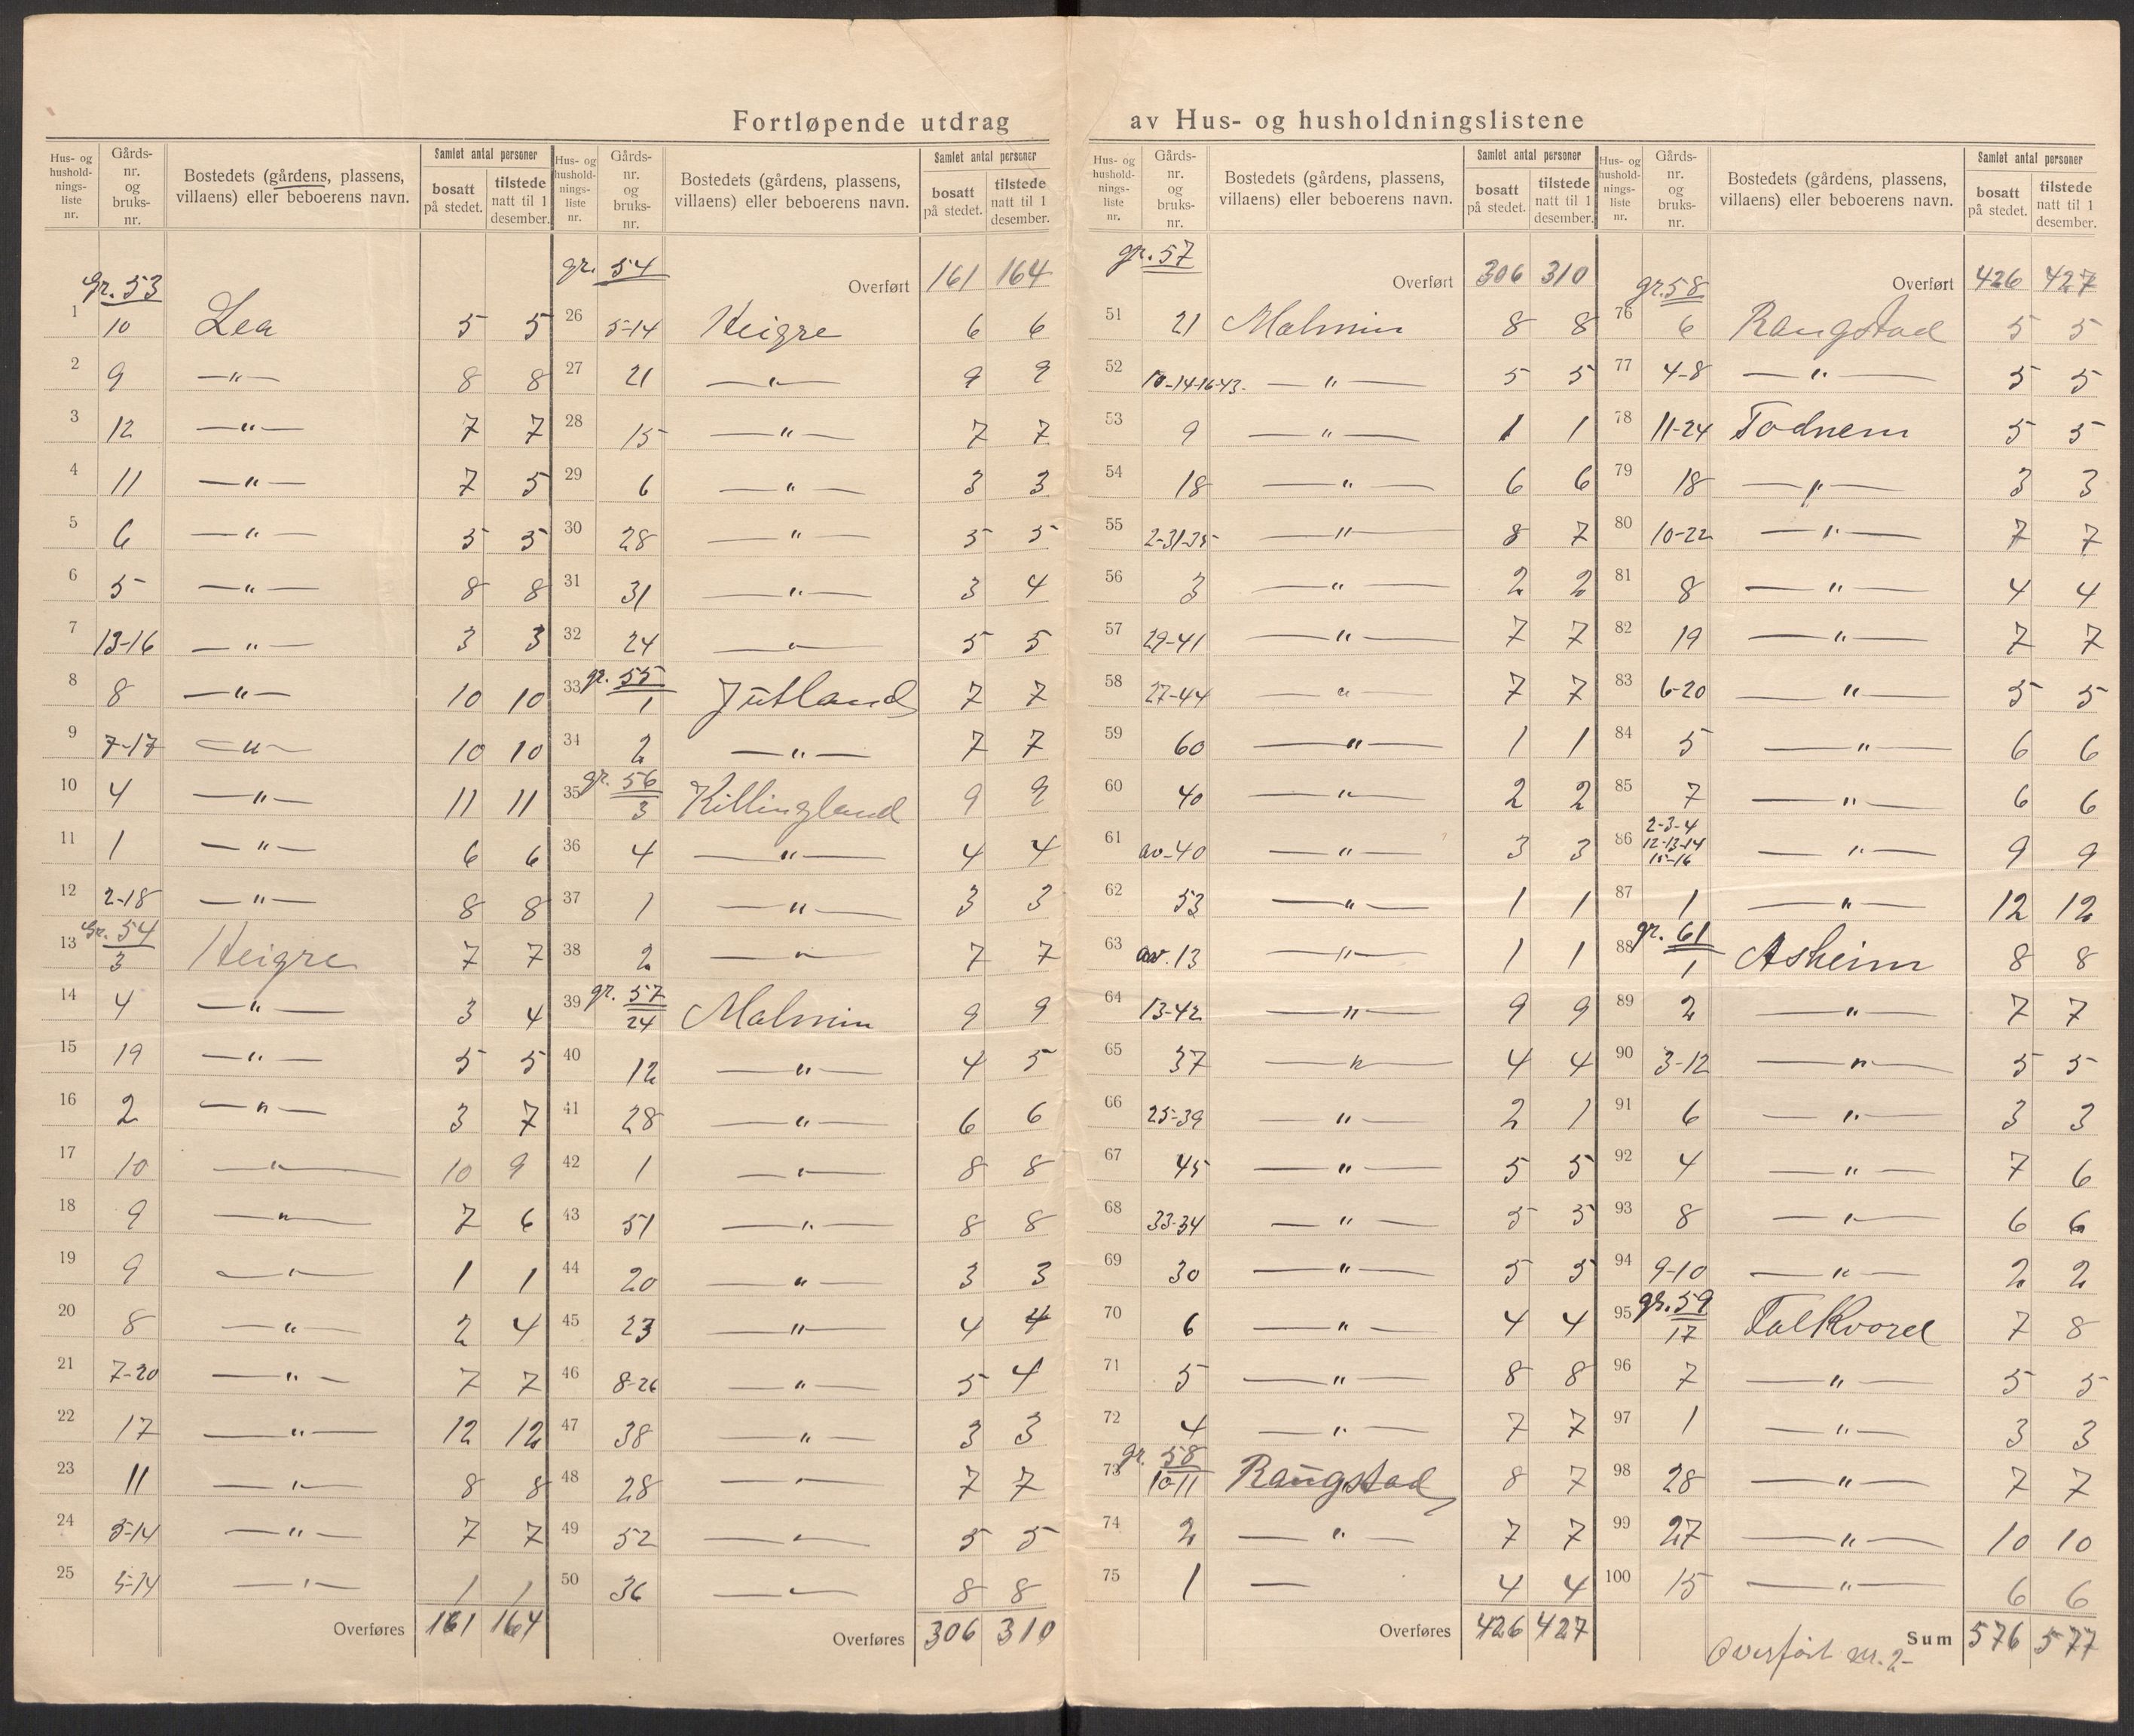 Fortløpende utdrag av Hus- og husholdningslistene
Hus- og hushold- nings- liste nr. | Gårds- nr. og bruks- nr. | Bostedets (gårdens, plassens, villaens) eller beboerens navn. | Samlet antal personer | bosatt på stedet. | tilstede natt til 1 desember.
Gr. 53
1 10 Lea 5 5
2 9 —"— 8 8
3 12 —"— 7 7
4 11 —"— 7 5
5 6 —"— 5 5
6 5 —"— 8 8
7 13-16 —"— 3 3
8 8 —"— 10 10
9 7-17 —"— 10 10
10 4 —"— 11 11
11 1 —"— 6 6
12 2-18 —"— 8 8
Gr. 54
13 3 Heigre 7 7
14 4 —"— 3 4
15 19 —"— 5 5
16 2 —"— 3 7
17 10 —"— 10 9
18 9 —"— 7 6
19 9 —"— 1 1
20 8 —"— 2 4
21 7-20 —"— 7 7
22 17 —"— 12 12
23 11 —"— 8 8
24 5-14 —"— 7 7
25 5-14 —"— 1 1
Overføres 161 164
Hus- og hushold- nings- liste nr. | Gårds- nr. og bruks- nr. | Bostedets (gårdens, plassens, villaens) eller beboerens navn. | Samlet antal personer | bosatt på stedet. | tilstede natt til 1 desember.
gr. 54 Overført 161 164
26 5-14 Heigre 6 6
27 21 —"— 9 9
28 15 —"— 7 7
29 6 —"— 3 3
30 28 —"— 5 5
31 31 —"— 3 4
32 24 —"— 5 5
gr. 55
33 1 Jutland 7 7
34 2 —"— 7 7
gr. 56
35 3 Killingland 9 9
36 4 —"— 4 4
37 1 —"— 3 3
38 2 —"— 7 7
gr. 57
39 24 Malmin 9 9
40 12 —"— 4 5
41 28 —"— 6 6
42 1 —"— 8 8
43 51 —"— 8 8
44 20 —"— 3 3
45 23 —"— 4 4
46 8-26 —"— 5 4
47 38 —"— 3 3
48 28 —"— 7 7
49 52 —"— 5 5
50 36 —"— 8 8
Overføres 306 310
Hus- og hushold- nings- liste nr. | Gårds- nr. og bruks- nr. | Bostedets (gårdens, plassens, villaens) eller beboerens navn. | Samlet antal personer | bosatt på stedet. | tilstede natt til 1 desember.
gr. 57 Overført 306 310
51 21 Malmin 8 8
52 10-14-16-43- —"— 5 5
53 9 —"— 1 1
54 18 —"— 6 6
55 2-31-35 —"— 8 7
56 3 —"— 2 2
57 29-41 —"— 7 7
58 27-44 —"— 7 7
59 60 —"— 1 1
60 40 —"— 2 2
61 av-40 —"— 3 3
62 53 —"— 1 1
63 av.13 —"— 1 1
64 13-42 —"— 9 9
65 37 —"— 4 4
66 25-39 —"— 2 1
67 45 —"— 5 5
68 33-34 —"— 5 5
69 30 —"— 5 5
70 6 —"— 4 4
71 5 —"— 8 8
72 4 —"— 7 7
gr. 58
73 10-11 Raugstad 8 7
74 2 —"— 7 7
75 1 — 4 4
Overføres 426 427
Hus- og hushold- nings- liste nr. | Gårds- nr. og bruks- nr. | Bostedets (gårdens, plassens, villaens) eller beboerens navn. | Samlet antal personer | bosatt på stedet. | tilstede natt til 1 desember.
gr. 58 Overført 426 427
76 6 Raugstad 5 5
77 4-8 —"— 5 5
78 11-24 Todnem 5 5
79 18 —"— 3 3
80 10-22 —"— 7 7
81 8 —"— 4 4
82 19 —"— 7 7
83 6-20 —"— 5 5
84 5 —"— 6 6
85 7 —"— 6 6
86 2-3-4 12-13-14 15-16 —"— 9 9
87 1 —"— 12 12
gr. 61
88 1 Asheim 8 8
89 2 —"— 7 7
90 3-12 —"— 5 5
91 6 —"— 3 3
92 4 —"— 7 6
93 8 —"— 6 6
94 9-10 —"— 2 2
gr. 59
95 17 Falkvord 7 8
96 7 —"— 5 5
97 1 —"— 3 3
98 28 —"— 7 7
99 27 —"— 10 10
100 15 —"— 6 6
Sum 576 577
Overført nr. 2-